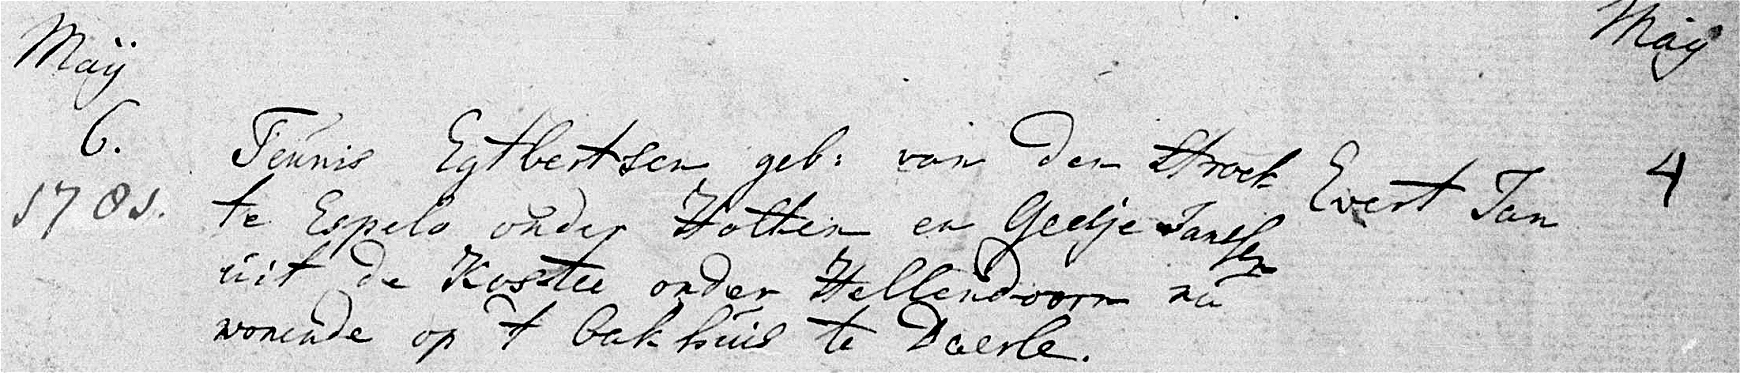 Maÿ
6.
1781.
Teunis Egtbertsen geb: van den Stroek
te Espelo onder Holten en Geesje Janssen
uit de Kostee onder Hellendoorn nu
wonende op 't bakhuis te Daerle.
Evert Jan
Maÿ
4